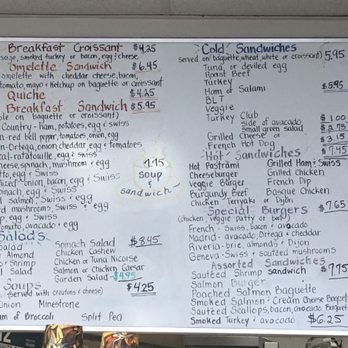 Breakfast Croissant $4.25
sage, smoked turkey or bacon, egg & cheese
Omelette Sandwich $6.45
omelette with cheddar cheese, bacon,
tomato, mayo & ketchup on baguette or croissant
Quiche $4.25
Breakfast Sandwich $5.95
ble on baguette or croissant)
Country - ham, potatoes, egg & swiss
n-red bell pepper, tomatoes, onion, egg
n-Ortega, onion, cheddar, egg & tomatoes
al-ratatouille, egg & swiss
inese, spinach, mushroom & egg
to, egg & Swiss
bacon, egg & Swiss
pinach, egg & Swiss
salmon, Swiss & egg
mushrooms, swiss & egg
p, egg & Swiss
omato, avocado & egg
7.75
soup
&
sandwich
Salads
Spinach Salad $8.45
Almond
Chicken Cashew
& Shrimp
Chicken or Tuna Nicoise
Salmon or Chicken Caesar
Salad
Garden Salad
Soups
served with croutons & cheese) $4.25
Onion Minestrone
am of Broccoli Split Pea
Cold Sandwiches
served on baguette, wheat, white or croissant) 5.95
Tuna, or deviled egg
Roast Beef
Turkey
Ham or Salami $5.95
BLT
Veggie
Turkey Club $1.00
side of avocado
small green salad $2.75
Grilled Cheese $3.75
French Hot Dog
Hot Sandwiches $7.45
Hot Pastrami Grilled Ham & Swiss
Cheeseburger Grilled Chicken
Veggie Burger French Dip
Burgundy Beef Basque Chicken
Chicken Teriyaki or Dijon
Special Burgers $7.65
(chicken, veggie patty or beef)
French - Swiss, bacon & avocado
Madrid - avocado, Ortega & cheddar
Riveria - brie, almonds & Dijon
Geneva - Swiss & sauteed mushrooms
Assorted Sandwiches
Sauteed Shrimp sandwich $7.75
Salmon Burger
Poached Salmon Baguette
Smoked Salmon & Cream Cheese Baguet
Sauteed Scallops, bacon, avocado Baguet
Smoked Turkey & avocado $6.25